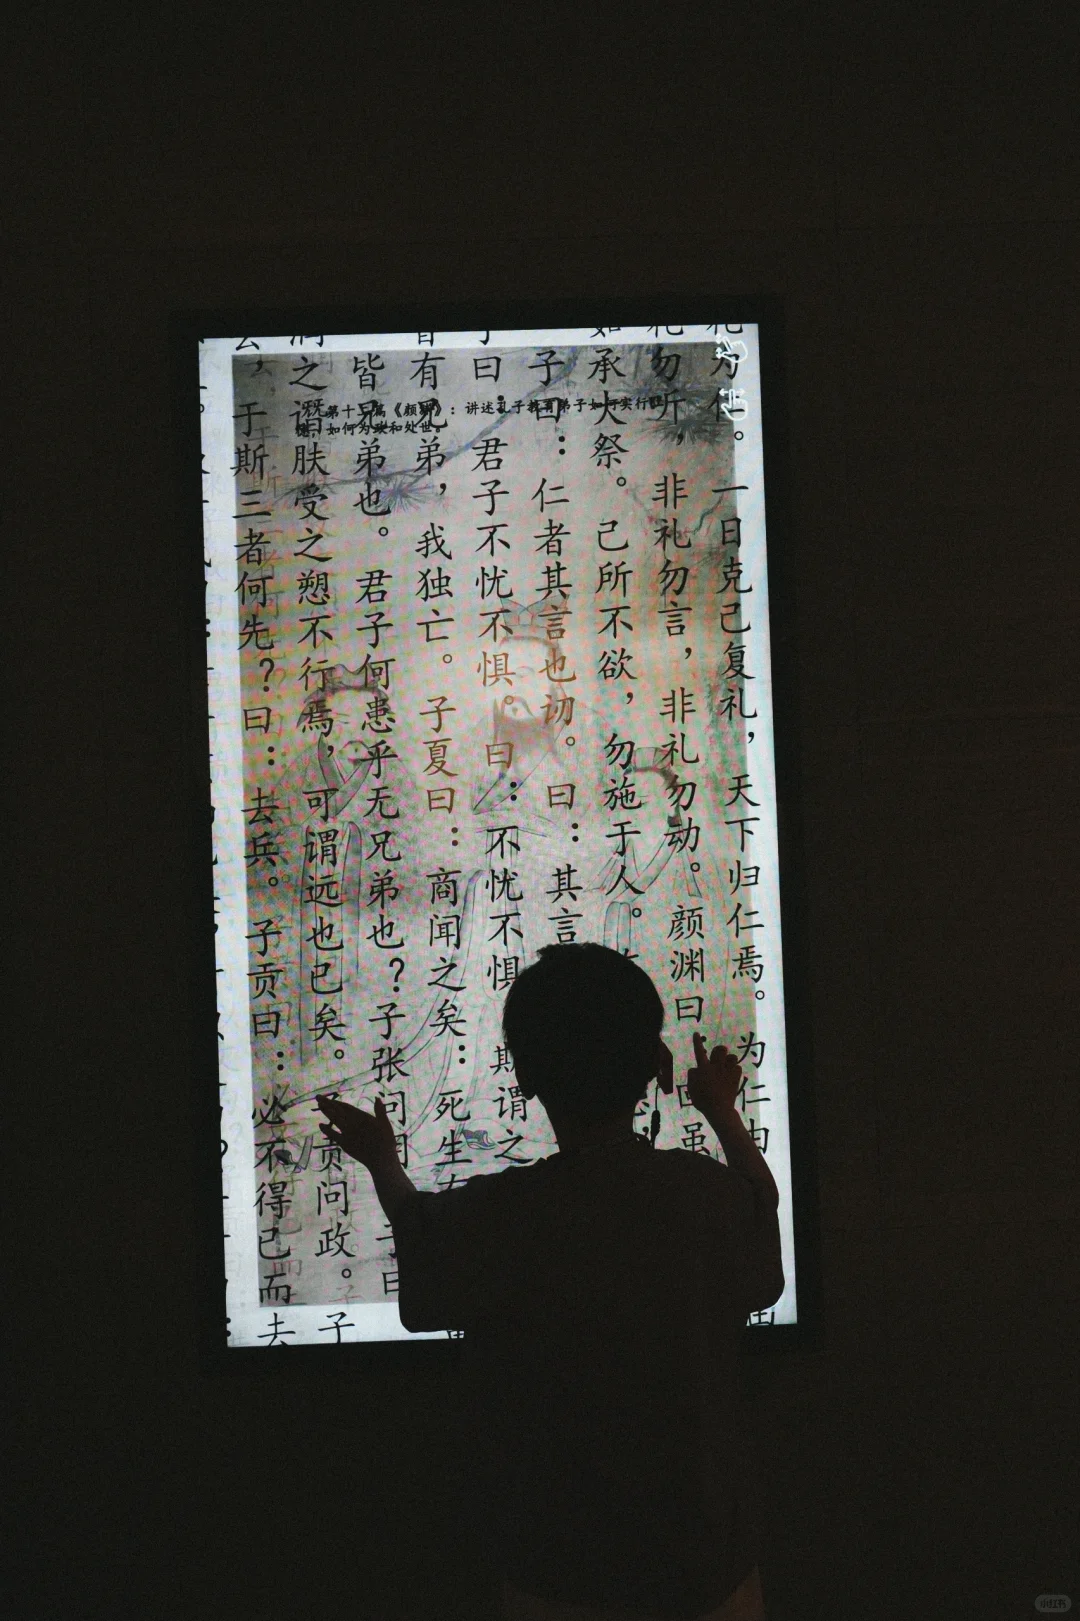 第十二篇《颜渊》：讲述孔子教育弟子如何实行
如何为政和处世。
礼为仁。一日克己复礼，天下归仁焉。为仁由
礼勿听，非礼勿言，非礼勿动。颜渊曰 回虽
如承大祭。己所不欲，勿施于人。
子曰：仁者其言也讱。曰：其言
子曰：君子不忧不惧。曰：不忧不惧 斯谓之
皆有兄弟，我独亡。子夏曰：商闻之矣：死生有
皆兄弟也。君子何患乎无兄弟也？子张问明 子曰
润之谮肤受之愬不行焉，可谓远也已矣。子贡问政。子
去，于斯三者何先？曰：去兵。子贡曰：必不得已而去
小红书